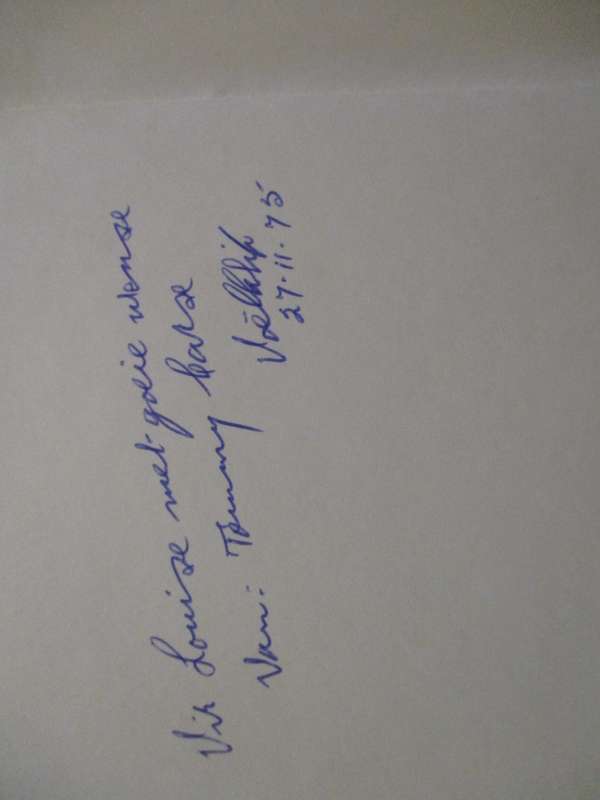 Vir Louise met goeie wense
Van: Tommy Carse
Voëlklip
27.11.75